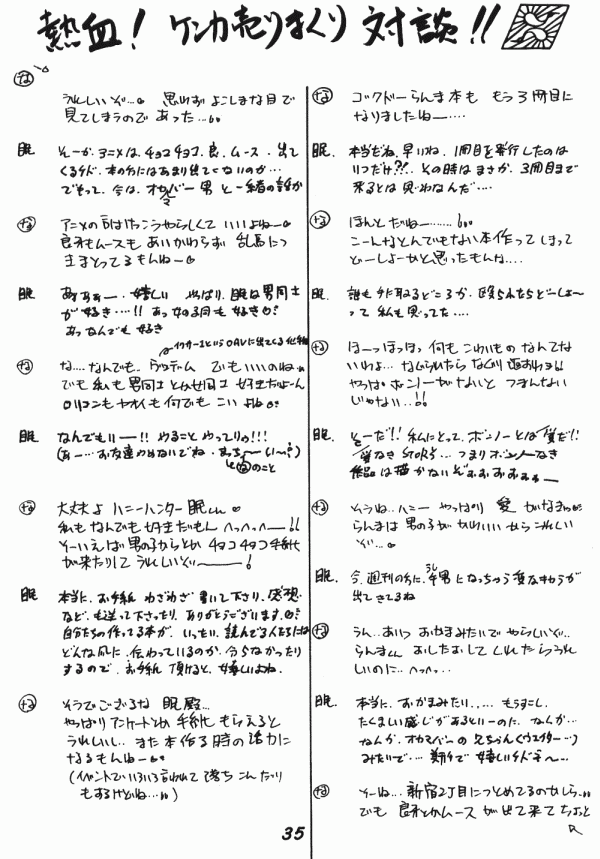 熱血! ケンカ売りまくり 対談!!
な うれしいぞ… 思わず よこしまな目で
見てしまうので あった…
眠 そーか、アニメは、チョコチョコ、良、ムース、出て
くるケド、本の方にはあまり出てこないのが…
でもって、今は、オカマバー男と一緒の話か
な アニメの方はけっこうやらしくて いいよねー
良牙もムースも あいかわらず 乱馬につ
きまとってるもんねー
眠 あぁぁー、嬉しい やっぱり、眠は男同士
が好き…!! あっ 女の子同士も好き
あっ なんでも 好き
な な…なんでも。 でも いいのね
でも 私も 男同士 とか女同士 好きだよーん
ロリコンも ヤオイも 何でも こいよね
眠 なんでもいーー!! やることやってりゃ!!!
(あー…お友達 やめないでね、
とのこと
な 大丈夫よ ハニーハンター 眠
私も なんでも 好きだもん へっへっへーー!!
そーいえば 男の子からとか チョコチョコ手紙
が来たりして うれしいぞーー!
眠 本当に、お手紙 わざわざ 書いて下さり、感想
なども送って下さったり、ありがとうございます
自分たちの作ってる本が、いったい、読んでる人たちには
どんな風に、伝わっているのか、分らなかったり
するので、お手紙 頂けると、嬉しいよね。
な そうでござるな 眠殿…
やっぱり アンケートとか 手紙 もらえると
うれしいし、また 本作る時の 活力に
なるもんねー
(イベントで いろいろ 言われて 落ちこんだり
もするけどね…)
な ゴクドーらんま本も もう3冊目に
なりましたねー…
眠. 本当だね、早いね、1冊目を発行したのは
いつだっけ?!、その時は まさか、3冊目まで
来るとは 思わなんだ…
な ほんとだねー……!
こーんなとんでもない本作ってしまって
どーしよーかと思ったもんな…
眠. 誰も手取るどころか、殴られたらどーしよ〜
って 私も思ってた…
な ほーっほっほっ 何も こわいもの なんてな
いわよ… なぐられたら なぐり返すわよ!!
やっぱ ボンノーがないと つまんない
じゃない..!!
眠. そーだ!! 私にとって、ボンノーとは 愛だ!!
愛なき STORY… つまり ボンノーなき
作品は 描かないぞぉぉぉぉぉぉ〜
な そうね.. ハニー やっぱり 愛 がなきゃ
らんまは 男の子が かわいいから うれしい
ぞ…
眠. 今、週刊の方に、牛男になっちゃう 変なキャラが
うし
出てきてるね
な うん..あいつ おかまみたいで やらしいぞ..
らんまくん おしたおして くれたら うれし
いのに.. へっへっ..
眠. 本当に、おかまみたい…、もう少し、
たくましい感じがあるといーのに、なんか…
なんか、オカマバーの 兄ちゃん(ウエイター…)
みたいで… 期待で 嬉しいケド〜…
な そーね… 新宿2丁目につとめてるのかしら..
でも 良牙とかムースが 出て来て ちょっと
35